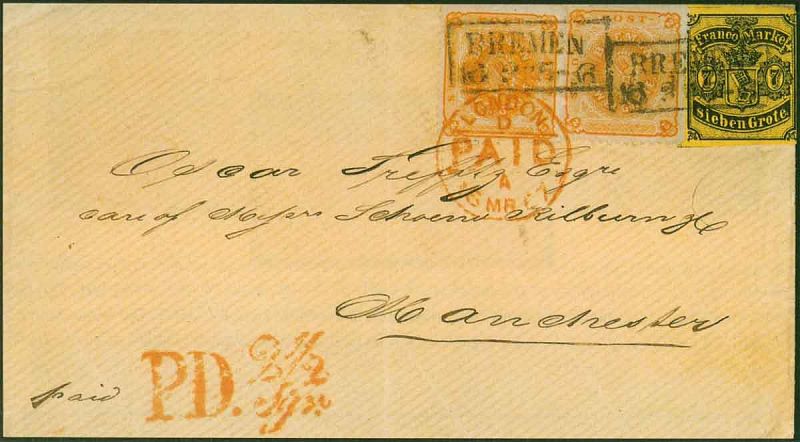 POST-
BREMEN
13 3 5-6
BREMEN
Franco Marke
7 7
Sieben Grote.
LONDON
D
PAID
A
16 MR 67
Oscar Treffitz Esqre
care of Messrs Schoene Kilburn & Co
Manchester
paid
P.D. 2½
Sgr